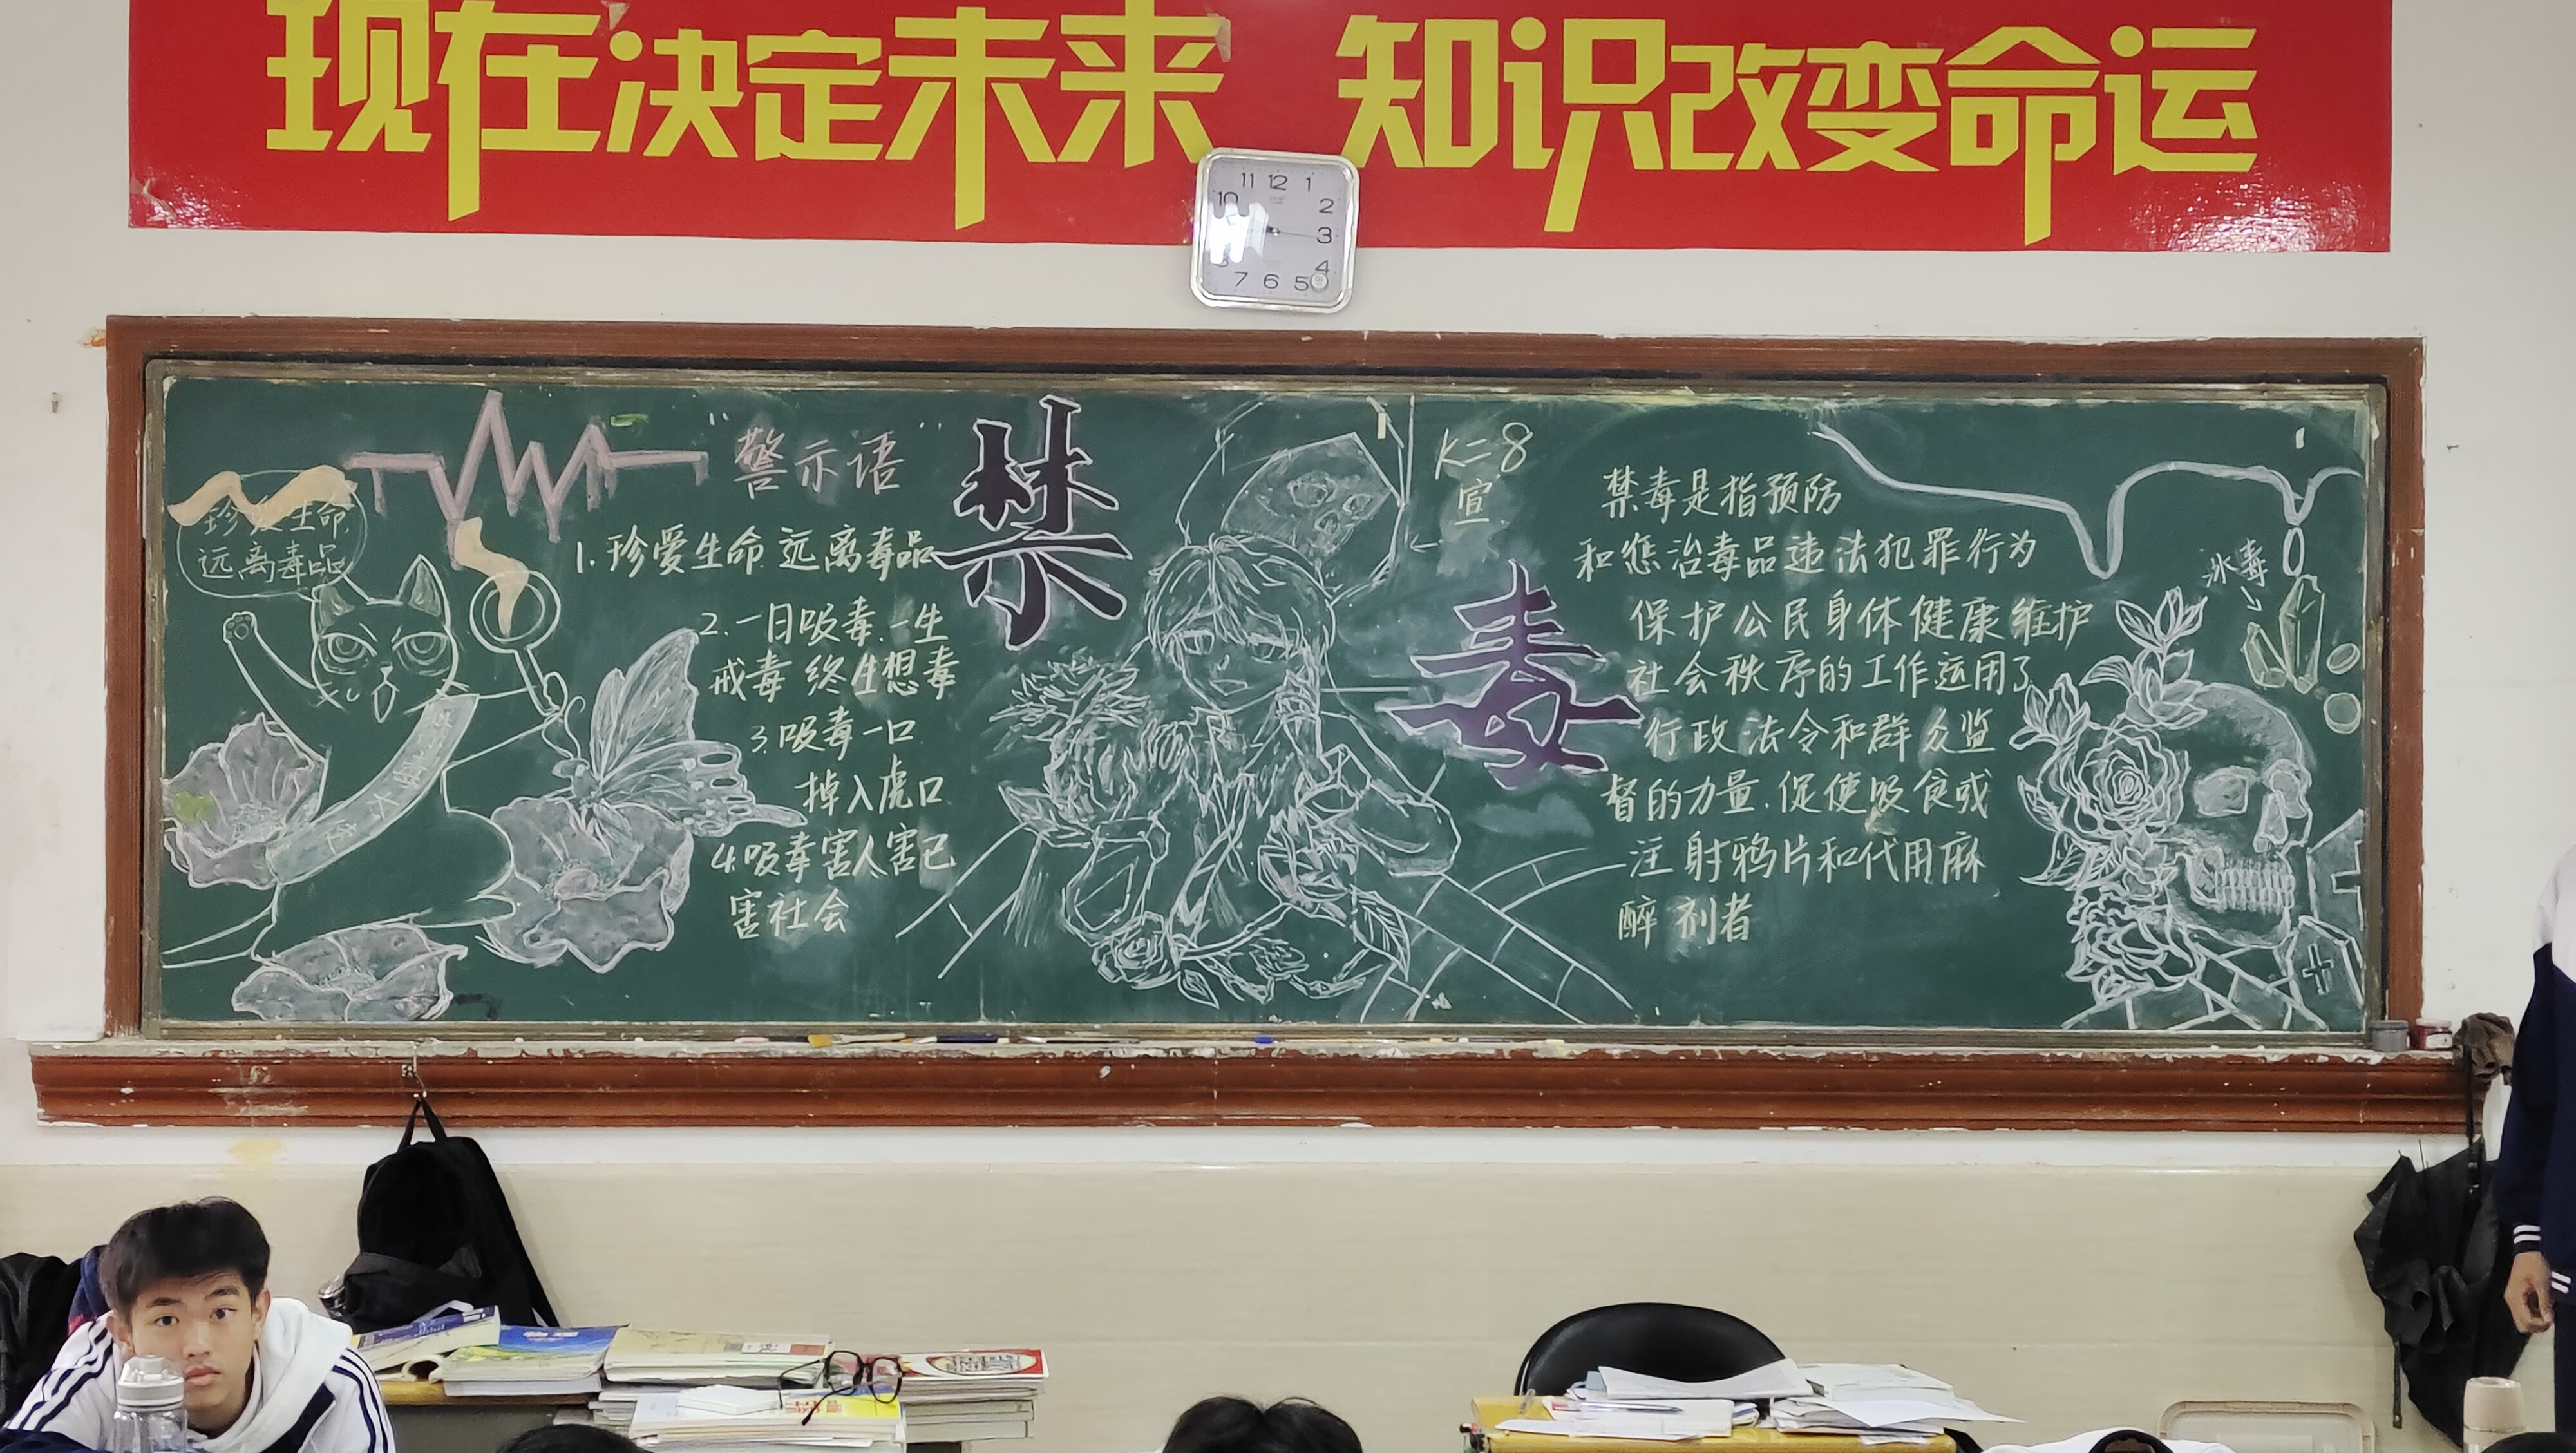 现在决定未来 知识改变命运
11 12 1
10 2
3
4
7 6 5
珍爱生命
远离毒品
"警示语"
1.珍爱生命 远离毒品
2.一日吸毒.一生
戒毒 终生想毒
3.吸毒一口
掉入虎口
4.吸毒害人害己
害社会
禁
毒
K二8
宣
禁毒是指预防
和惩治毒品违法犯罪行为
保护公民身体健康 维护
社会秩序的工作运用了
行政法令和群众监
督的力量.促使吸食或
注射鸦片和代用麻
醉剂者
冰毒